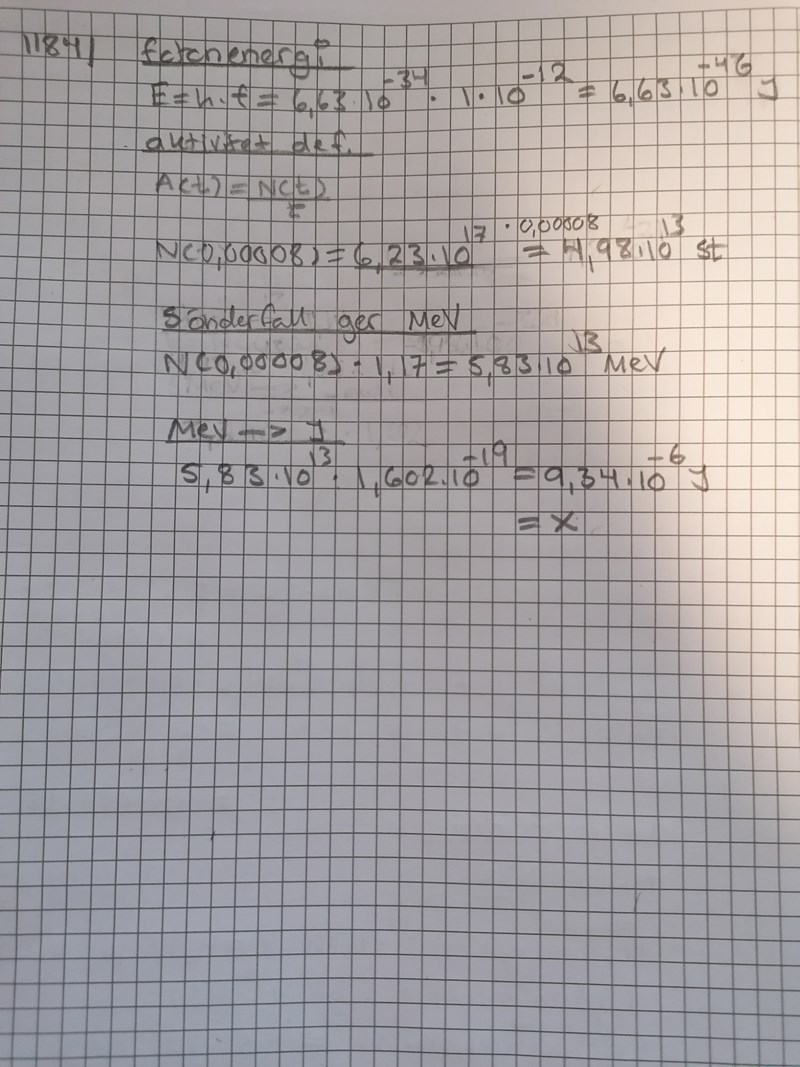 1184) fotonenergi
E=h·f = 6,63·10^-34 · 1·10^-12 = 6,63·10^-46 J
aktivitet def.
A(t) = N(t)/t
N(0,00008) = 6,23·10^17 · 0,00008 = 4,98·10^13 st
Sönderfall ger MeV
N(0,00008) · 1,17 = 5,83·10^13 MeV
MeV --> J
5,83·10^13 · 1,602·10^-19 = 9,34·10^-6 J
= x